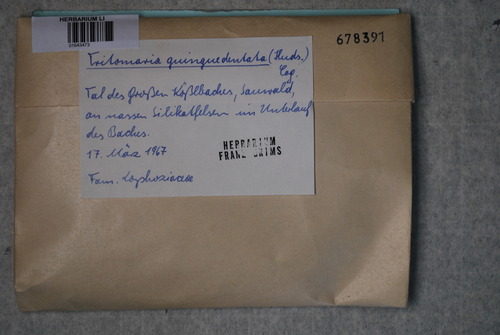 HERBARIUM LI
678391
Tritomaria quinquedentata (Huds.)
Tal des Großen Kößlbaches, Sauwald,
an nassen Silikatfelsen im Unterlauf
des Baches.
17. März 1967
HERBARIUM
FRANZ GRIMS
Fam. Lophoziaceae